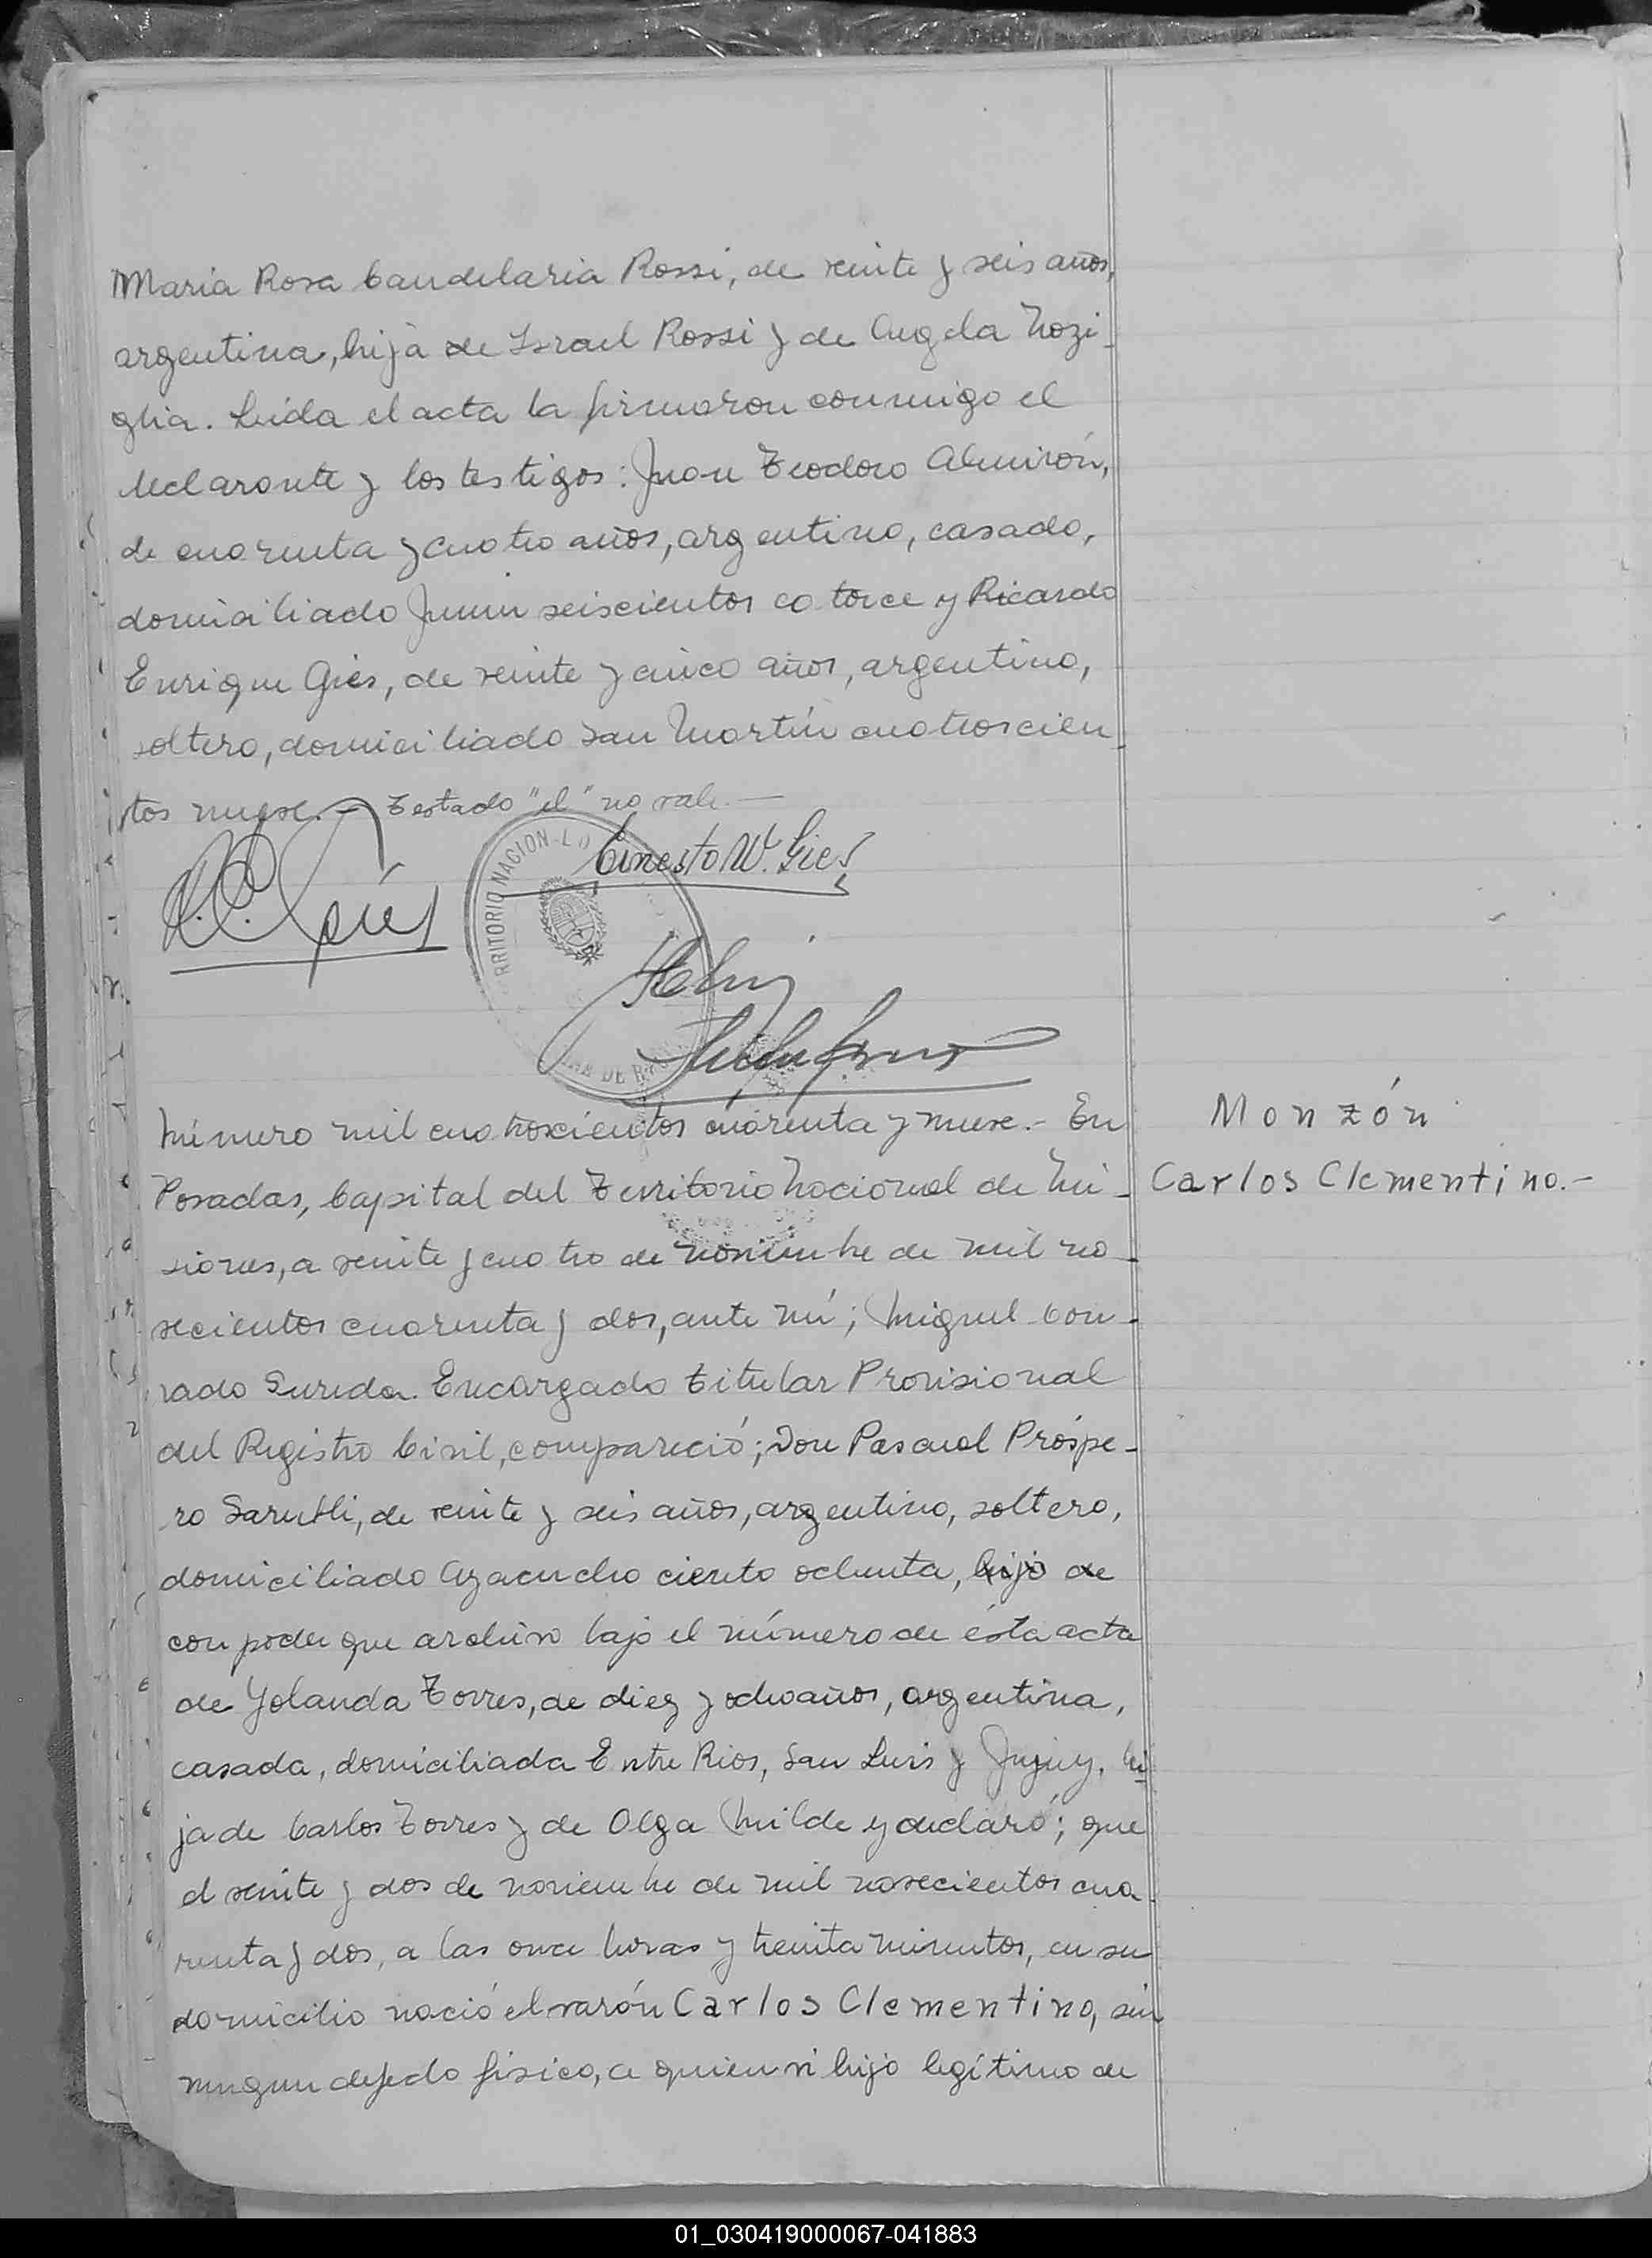 Maria Rosa Candelaria Rossi, de veinte y seis años,
argentina, hija de Israel Rossi y de Angela Nozi-
glia. Leida el acta la firmaron conmigo el
declarante y los testigos: Juan Teodoro Almirón,
de cuarenta y cuatro años, argentino, casado,
domiciliado Junin seiscientos catorce y Ricardo
Enrique Gies, de veinte y cinco años, argentino,
soltero, domiciliado San Martín cuatroscien-
tos nueve.- Testado "el" no vale.—
Ernesto W. Gies
R. E. Gies
RRITORIO NACION
Número mil cuatroscientos cuarenta y nueve.- En
Posadas, Capital del Territorio Nacional de Mi-
siones, a veinte y cuatro de noviembre de mil no-
vecientos cuarenta y dos, ante mí; Miguel Con-
rado Sureda. Encargado Titular Provisional
del Registro Civil, compareció; Don Pascual Próspe-
ro Sarubbi, de veinte y seis años, argentino, soltero,
domiciliado Ayacucho ciento ochenta, hijo de
con poder que archivo bajo el número de ésta acta
de Yolanda Torres, de diez y ocho años, argentina,
casada, domiciliada Entre Rios, San Luis y Jujuy, hi-
ja de Carlos Torres y de Olga Milde y declaró; que
el veinte y dos de noviembre de mil novecientos cua-
renta y dos, a las once horas y treinta minutos, en su
domicilio nació el varón Carlos Clementino, sin
ningun defecto físico, a quien vi hijo legítimo de
Monzón
Carlos Clementino.-
01_030419000067-041883